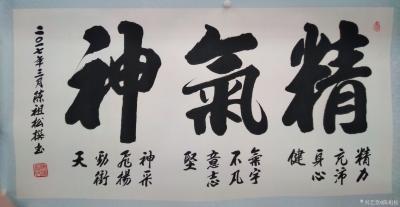 精氣神
精力
充沛
身心
健
氣宇
不凡
意志
堅
神采
飛揚
勁衝
天
二〇一七年三月陈祖松撰书